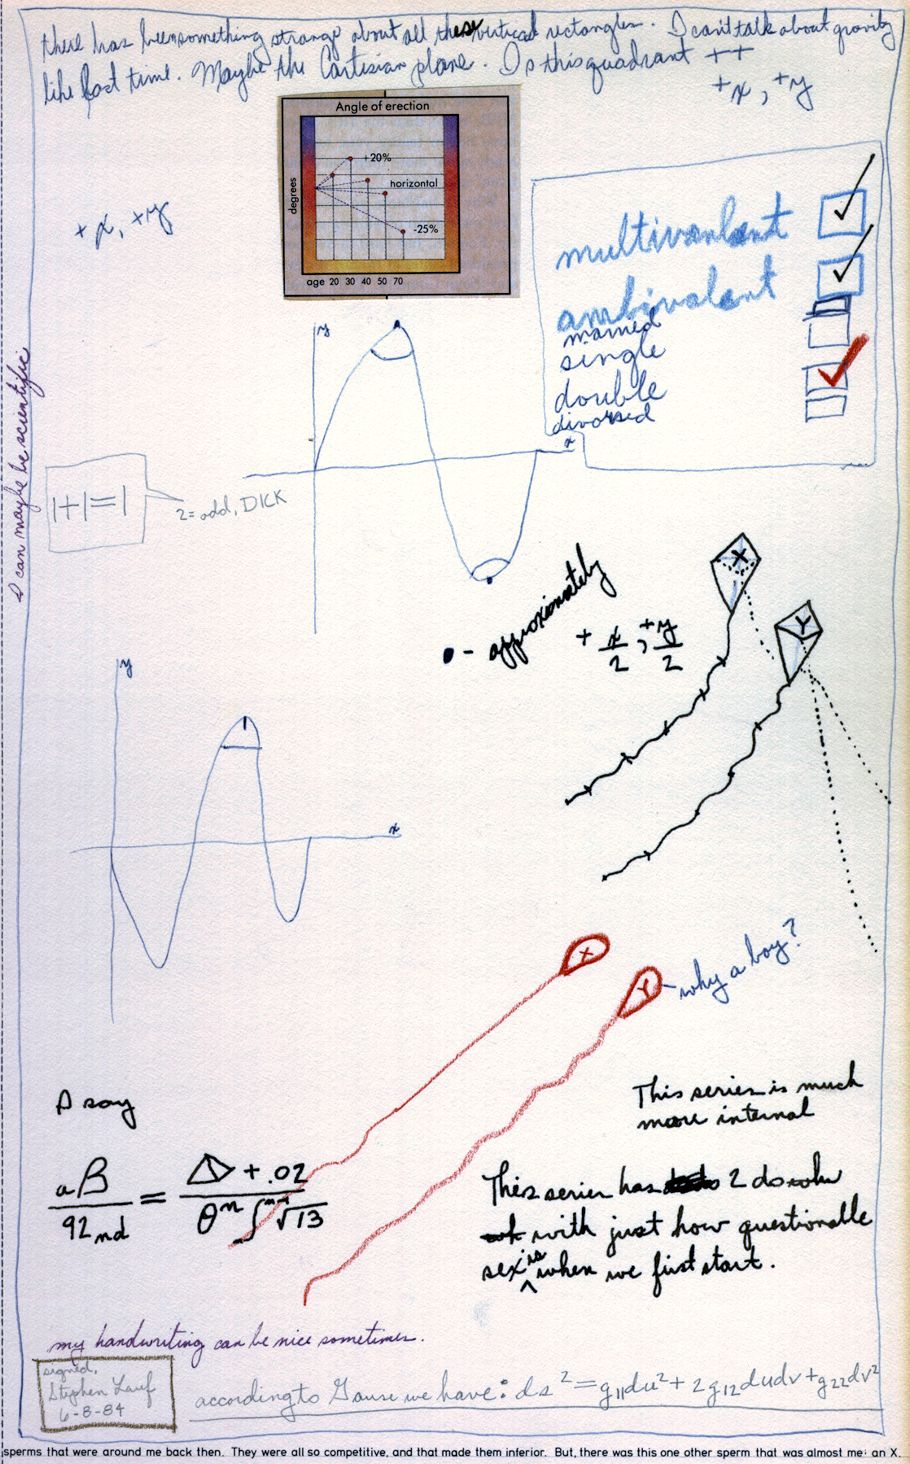 there has been something strange about all these vertical rectangles. I can't talk about gravity
like last time. Maybe the Cartesian plane. Is this quadrant ++
+x, +y
Angle of erection
+20%
horizontal
degrees
-25%
age 20 30 40 50 70
+x, +y
multivalent
ambivalent
married
single
double
divorsed
y
x
I can maybe be scientific
1+1=1
2=odd, DICK
- approximately
+ x/2, +y/2
X
Y
y
x
X
Y
why a boy?
I say
aB/92nd = Δ + .02
√13
This series is much
more internal
This series has 2 do
with just how questionable
sex is when we first start.
my handwriting can be nice sometimes.
signed,
Stephen Lauf
6-8-84
according to Gauss we have: ds² = g₁₁du² + 2g₁₂dudv + g₂₂dv²
sperms that were around me back then. They were all so competitive, and that made them inferior. But, there was this one other sperm that was almost me: an X.